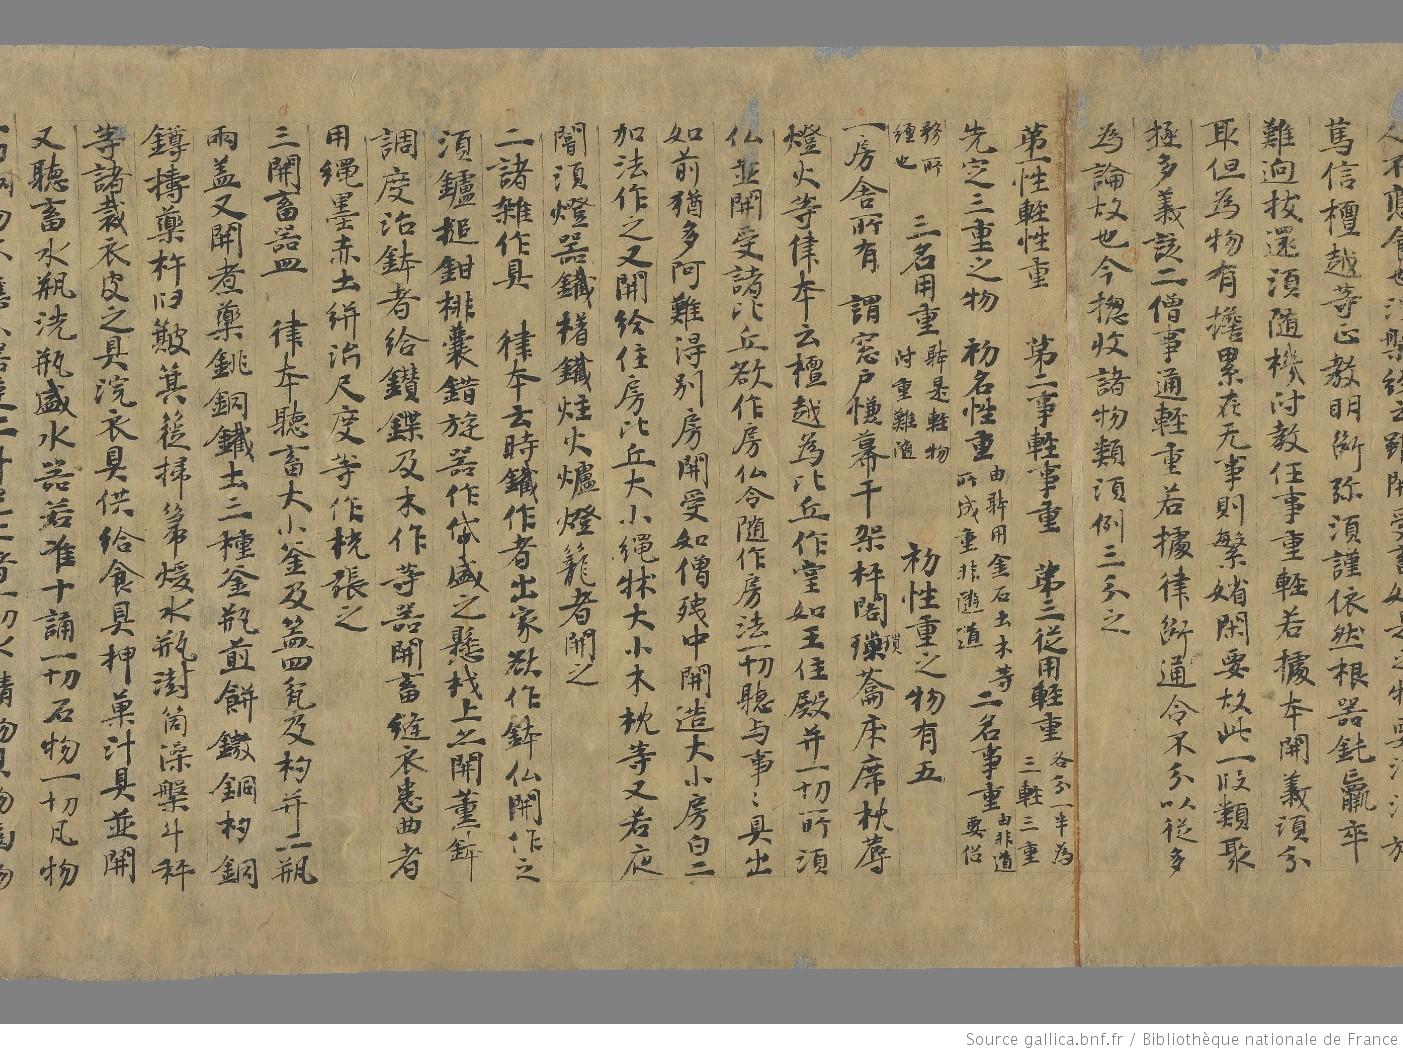 篤信檀越等正教明断弥須謹依然根器鈍羸卒
難逈拔還須随機付教任事重軽若據本開義須分
耴但為物有擔累在无事則繁娋閑要故此一段類聚
極多義該二僧事通軽重若據律断通令不分以從多
為論故也今揔收諸物類須例三分之
第一性軽性重 第二事軽事重 第三從用軽重 各分一半為三軽三重
先定三重之物 初名性重 由斯用金石土木等所成重非遁道 二名事重 由非道要俗
務所纏也 三名用重 斯是軽物附重難随 初性重之物有五
一房舍所有 謂窓戶慊幕干架枰閣璅蕎床席枕蓐
燈火等律本云檀越為比丘作堂如王住殿并一切所須
仏並開受諸比丘欲作房仏令随作房法一切聽与事〻具出
如前猶多阿難得別房開受如僧残中開造大小房白二
加法作之又開給住房比丘大小繩牀大小木枕等又若夜
闇須燈器鐵櫡鐵炷火爐燈籠者開之
二諸雜作具 律本云時鐵作者出家欲作鉢仏開作之
須鑪搥鉗棑囊錯旋器作帒盛之懸杙上之開薰鉢
調度治鉢者給鑽鍱及木作等器開畜縫衣患曲者
用繩墨赤土絣治尺度等作桄張之
三開畜器皿 律本聽畜大小釜及盖四瓮及杓并二瓶
兩盖又開煮藥銚銅鐵土三種釜瓶煎餅鏾銅杓銅
鐏擣藥杵臼簸箕篵掃箒煖水瓶澍筒澡槃斗秤
等諸裁衣皮之具浣衣具供給食具押菓汁具並開
又聽畜水瓶洗瓶盛水器若准十誦一切石物一切凡物